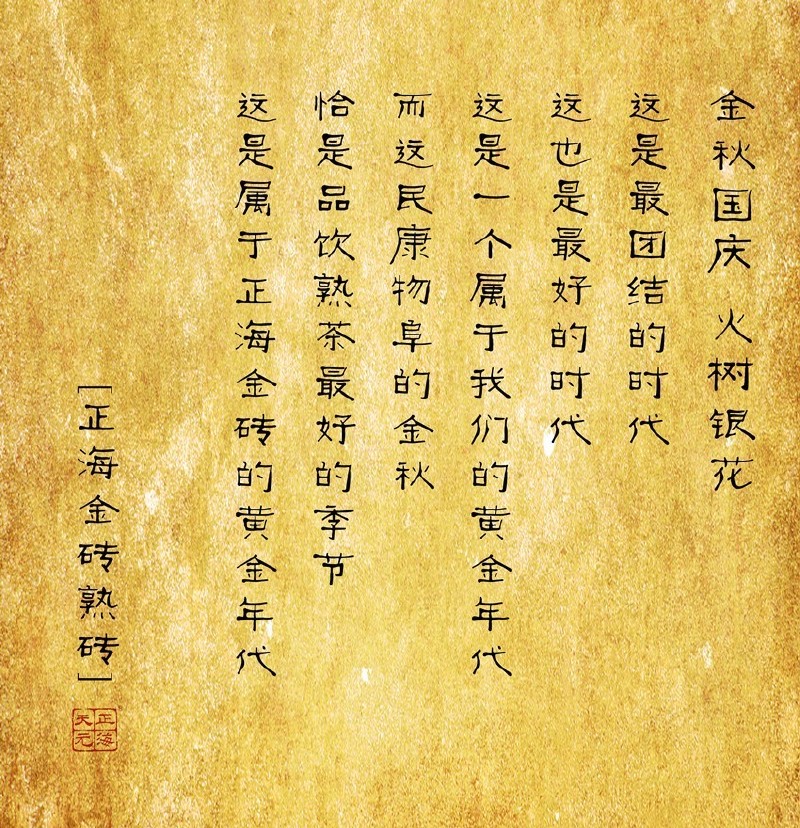 金秋国庆 火树银花
这是最团结的时代
这也是最好的时代
这是一个属于我们的黄金年代
而这民康物阜的金秋
恰是品饮熟茶最好的季节
这是属于正海金砖的黄金年代
[正海金砖熟砖]
正海
天元